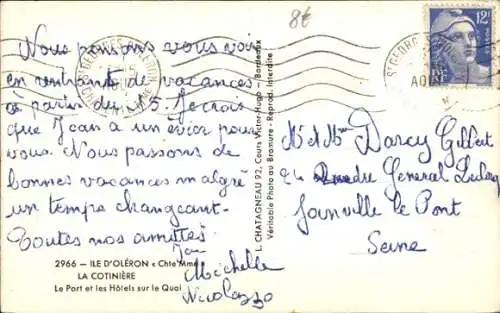 Nous pensons vous voir
en rentrant de vacances
à partir du 15. Je crois
que Jean a un évier pour
vous. Nous passons de
bonnes vacances malgré
un temps changeant.
Toutes nos amitiés
Michelle
Nicolazzo
2966 - ILE D'OLÉRON « Chte Mme »
LA COTINIÈRE
Le Port et les Hôtels sur le Quai
L. CHATAGNEAU 92, Cours Victor-Hugo - Bordeaux
Véritable Photo au Bromure - Reprod. Interdite
8€
ST GEORGES
AOUT
12F
Mr et Mme Darcy Gilbert
24 General Leclerc
Joinville le Pont
Seine